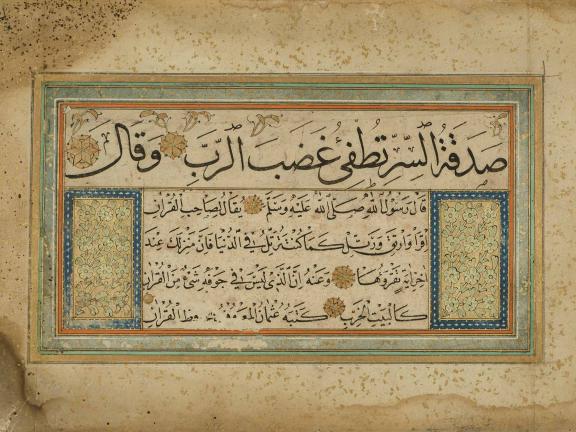 صَدَقَةُ السِّرِّ تُطْفِئُ غَضَبَ الرَّبِّ وَقَالَ
قَالَ رَسُولُ اللهِ صَلَّى اللهُ عَلَيْهِ وَسَلَّمَ يُقَالُ لِصَاحِبِ الْقُرْآنِ
اقْرَأْ وَارْتَقِ وَرَتِّلْ كَمَا كُنْتَ تُرَتِّلُ فِي الدُّنْيَا فَإِنَّ مَنْزِلَكَ عِنْدَ
آخِرِ آيَةٍ تَقْرَؤُهَا وَعَنْهُ إِنَّ الَّذِي لَيْسَ فِي جَوْفِهِ شَيْءٌ مِنَ الْقُرْآنِ
كَالْبَيْتِ الْخَرِبِ كَتَبَهُ عُثْمَانُ الْقُرْآنِ